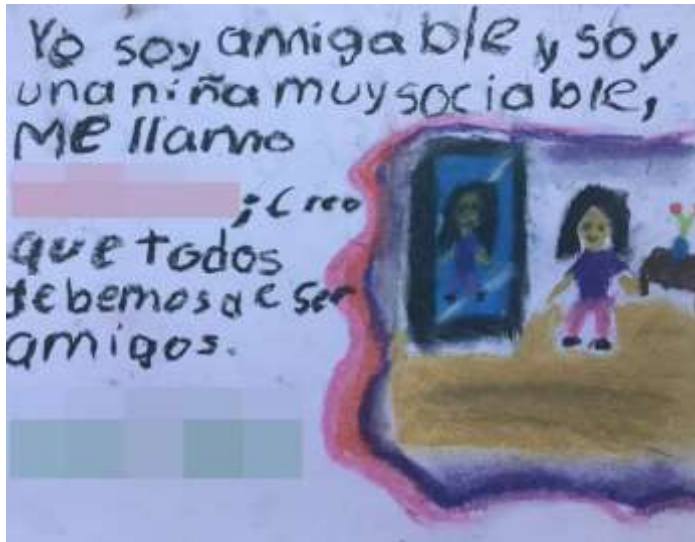 Yo soy amigable y soy
una niña muy sociable,
ME llamo
; Creo
que todos
debemos de ser
amigos.